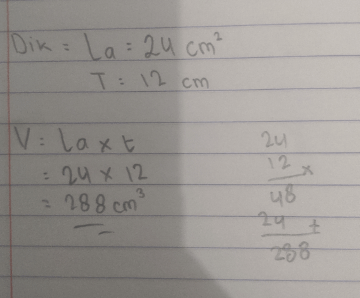 Dik = La = 24 cm²
T = 12 cm
V = La x t
= 24 x 12
= 288 cm³
24
12 x
48
24 +
288